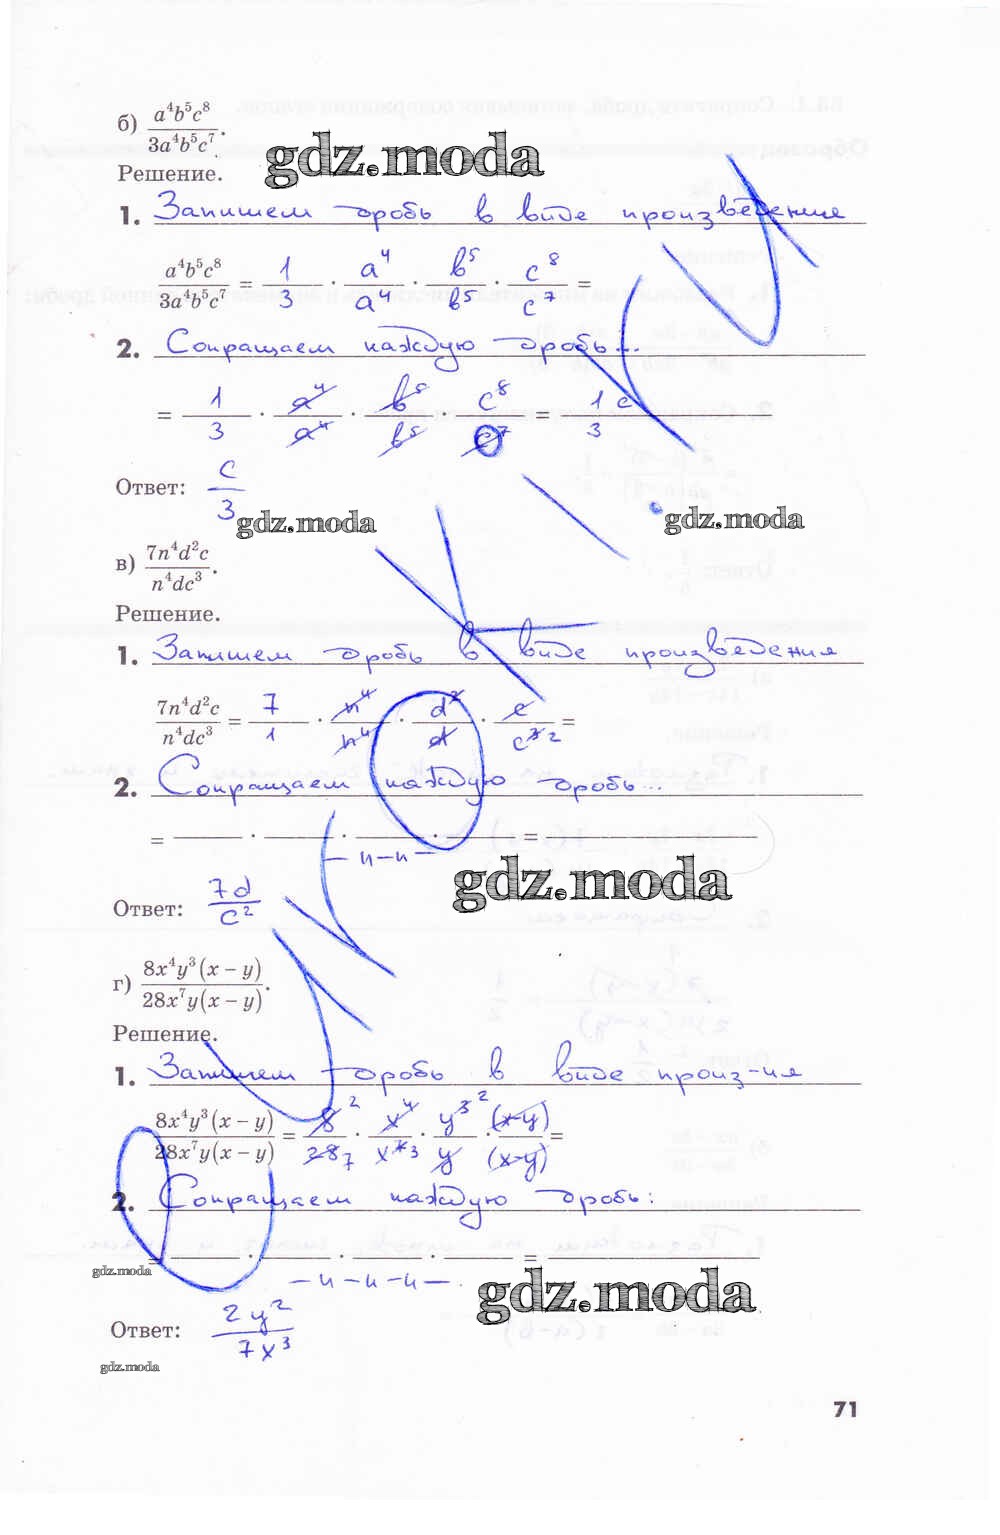 б) a⁴b⁵c⁸ / 3a⁴b⁵c⁷.
gdz.moda
Решение.
1. Запишем дробь в виде произведение
a⁴b⁵c⁸ / 3a⁴b⁵c⁷ = 1/3 · a⁴/a⁴ · b⁵/b⁵ · c⁸/c⁷ =
2. Сокращаем каждую дробь...
= 1/3 · a⁴/a⁴ · b⁵/b⁵ · c⁸/c⁷ = 1c/3
Ответ: c/3
gdz.moda gdz.moda
в) 7n⁴d²c / n⁴dc³.
Решение.
1. Запишем дробь в виде произведения
7n⁴d²c / n⁴dc³ = 7/1 · n⁴/n⁴ · d²/d · c/c³ ² =
2. Сокращаем каждую дробь...
= · · · =
— и — и —
gdz.moda
Ответ: 7d/c²
г) 8x⁴y³(x − y) / 28x⁷y(x − y).
Решение.
1. Запишем дробь в виде произ-ия
8x⁴y³(x − y) / 28x⁷y(x − y) = 8 ² / 28 7 · x⁴/x⁷ ³ · y³ ² / y · (x-y)/(x-y) =
2. Сокращаем каждую дробь:
= · · · =
gdz.moda
— и — и — и — .
gdz.moda
Ответ: 2y²/7x³
gdz.moda
71